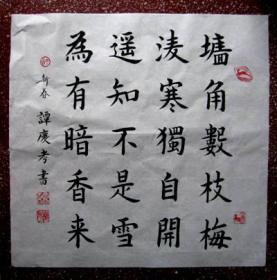 墻角數枝梅
淩寒獨自開
遥知不是雪
為有暗香来
新春 譚慶孝書